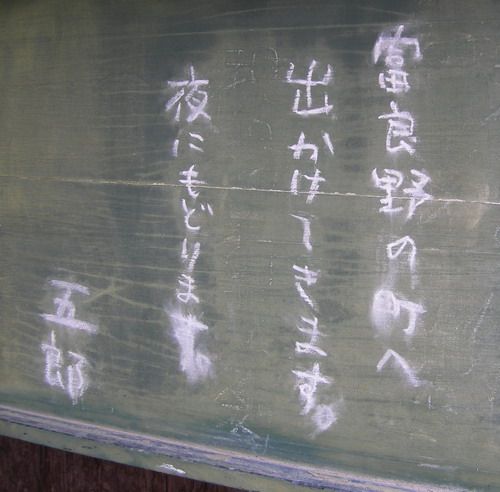 富良野の町へ
出かけてきます。
夜にもどります。
五郎